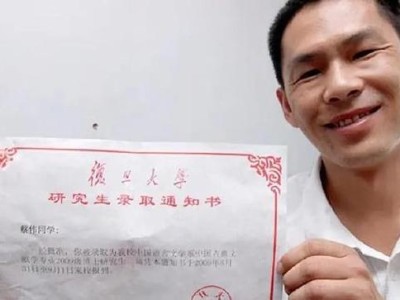 復旦大学
研究生录取通知书
蔡伟同学：
经批准，你被录取为我校中国语言文学系中国古典文
献学专业2009级博士研究生，请凭本通知书于2009年8月
31日至9月1日来校报到。